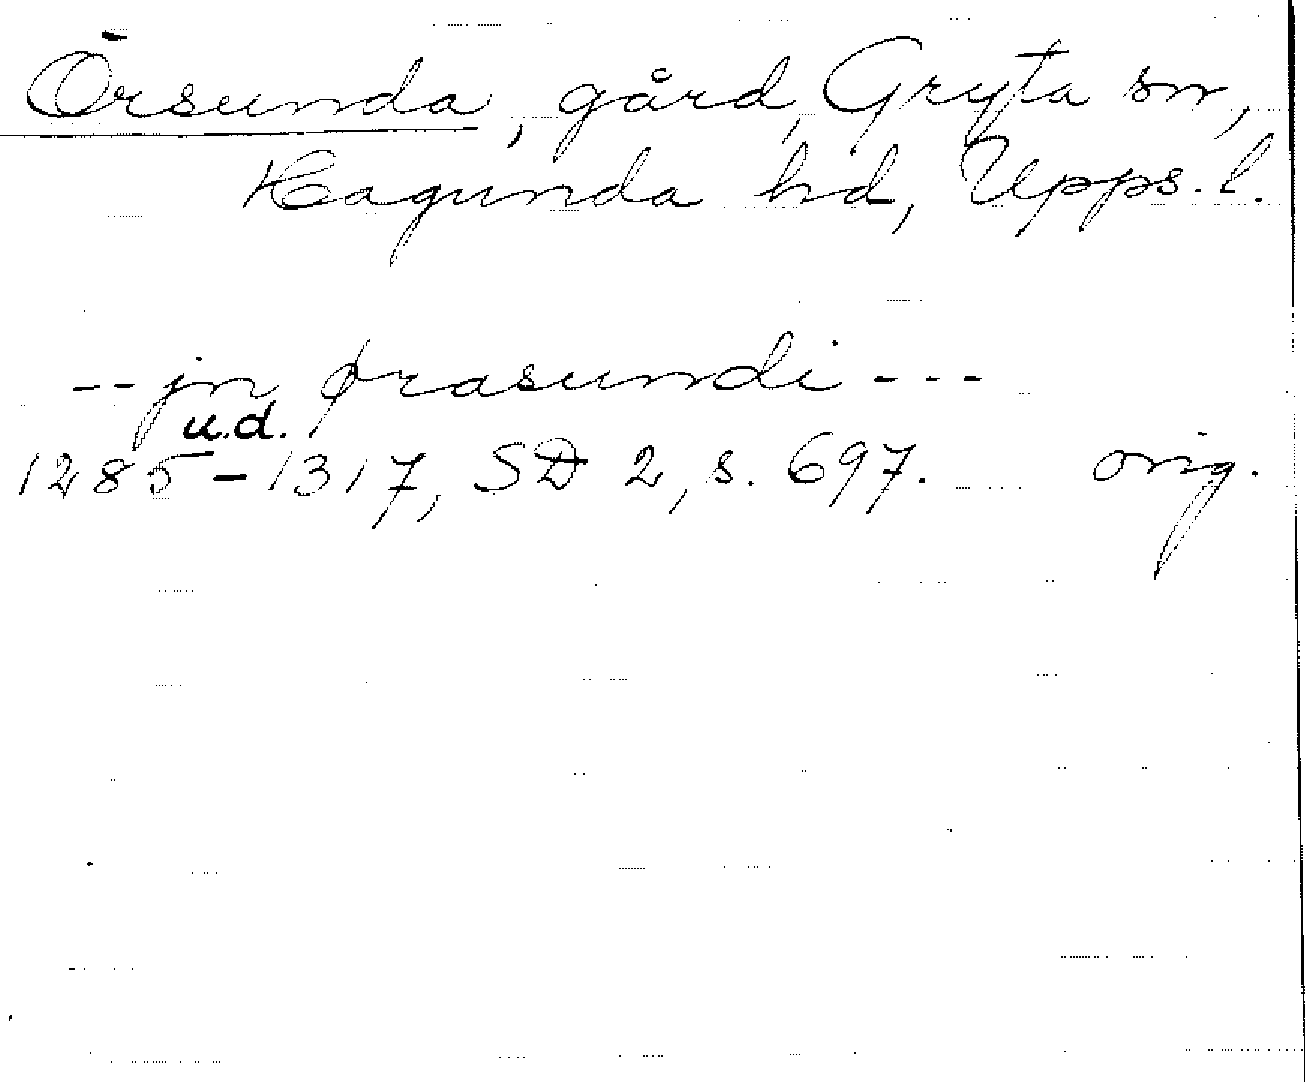 Örsunda, gård, Gryta sn,
Hagunda hd, Upps. l.
-- jn ørasundi ---
u.d.
1285-1317, SD 2, s. 697. orig.